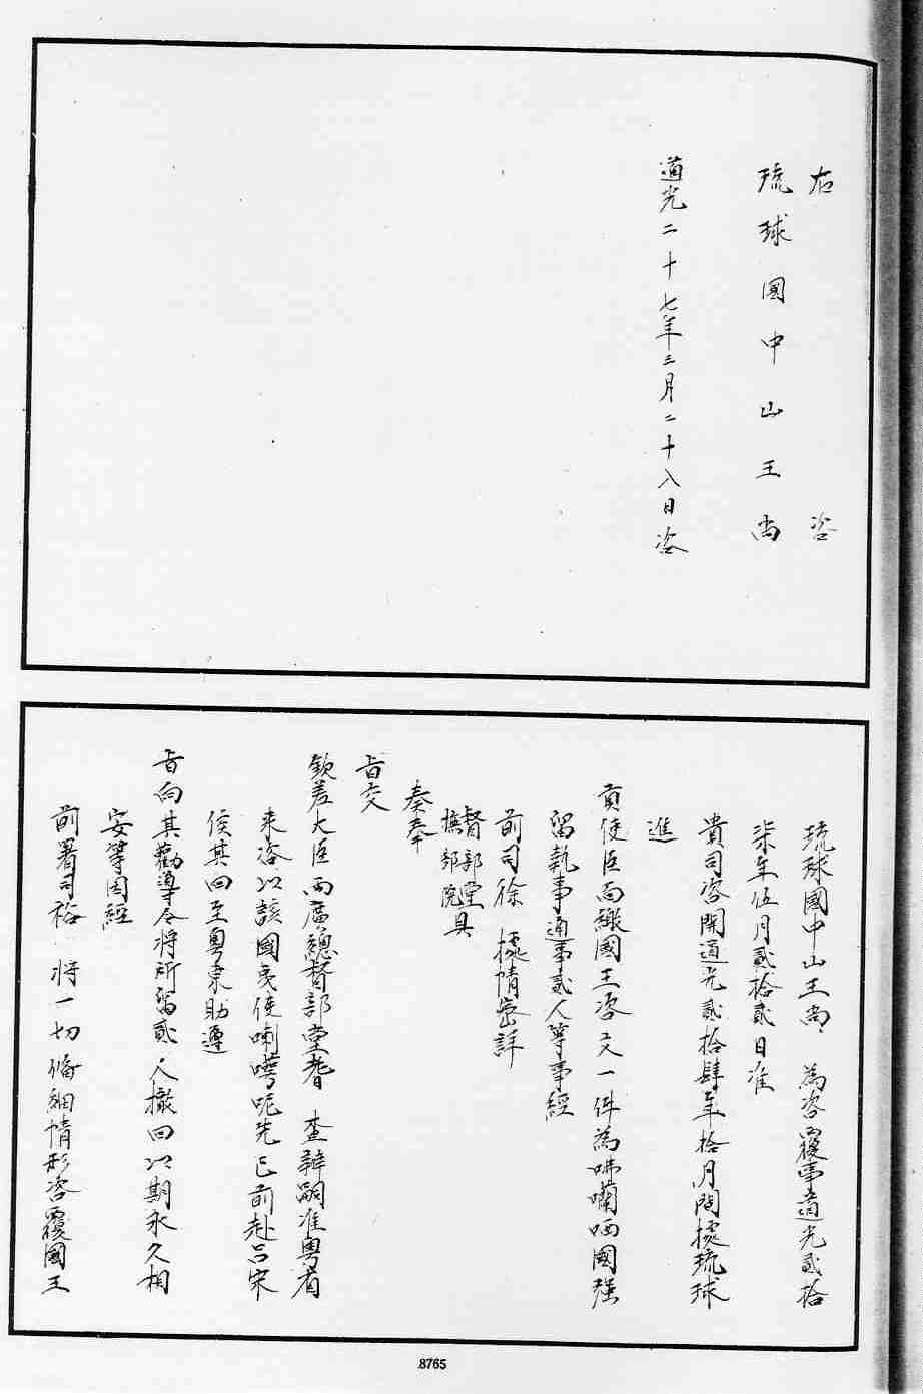 右　咨
琉球國中山王尚
道光二十七年三月二十八日咨
琉球國中山王尚　為咨覆事道光貳拾
柒年伍月貳拾貳日准
貴司咨開道光貳拾肆年拾月間據琉球
進
貢使臣面繳國王咨文一件為咈囒哂國强
留執事通事貳人等事經
前司徐　據情密詳
督部堂
撫部院具
奏奉
旨交
欽差大臣兩廣總督部堂耆　查辦嗣准粵省
来咨以該國夷使喇嗶呢先已前赴呂宋
俟其回至粵東助遵
旨向其勸導令將所留貳人撤回以期永久相
安等因經
前署司裕　將一切俻細情形咨覆國王
8765